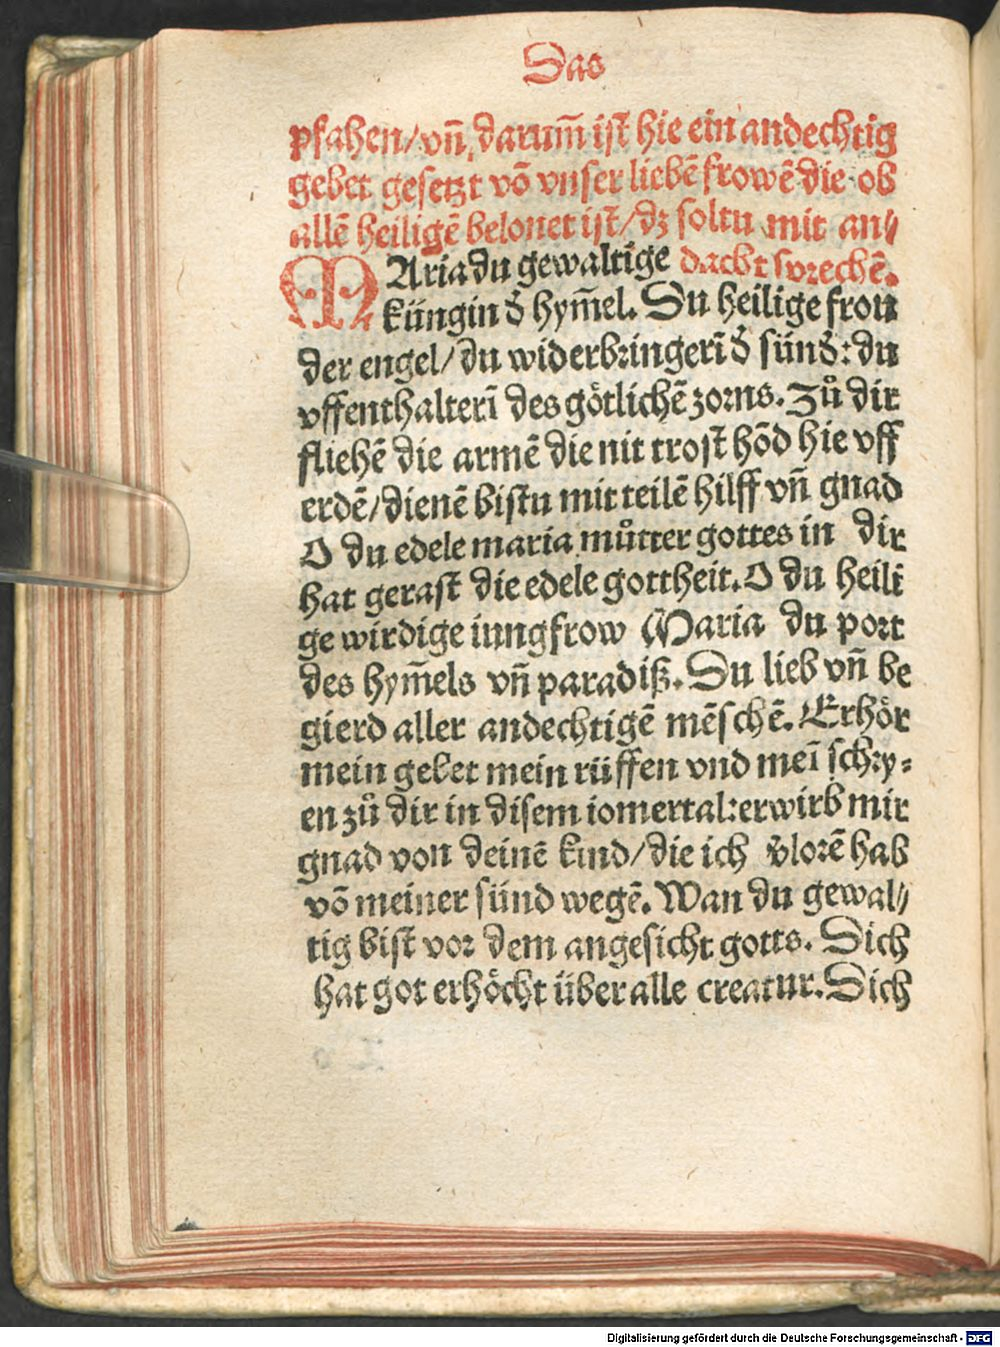 Das
pfahen/ vn̄ darum̄ ist hie ein andechtig
gebet gesetzt vō vnser liebē frowē die ob
allē heiligē belonet ist/ dz soltu mit an⸗
MAria du gewaltige dacht sprechē.
küngin d̕ hym̄el. Du heilige frou
der engel/ du widerbringerī d̕ sünd̕: du
vffenthalterī des götlichē zorns. Zů dir
fliehē die armē die nit trost hōd hie vff
erdē/ dienē bistu mit teilē hilff vn̄ gnad
O du edele maria můtter gottes in dir
hat gerast die edele gottheit. O du heili
ge wirdige iungfrow Maria du port
des hym̄els vn̄ paradiß. Du lieb vn̄ be
gierd aller andechtigē mēschē. Erhör
mein gebet mein rüffen vnd meī schry⸗
en zů dir in disem iomertal: erwirb mir
gnad von deinē kind/ die ich v̕lorē hab
vō meiner sünd wegē. Wan du gewal⸗
tig bist vor dem angesicht gotts. Dich
hat got erhöcht über alle creatur. Dich
Digitalisierung gefördert durch die Deutsche Forschungsgemeinschaft - DFG